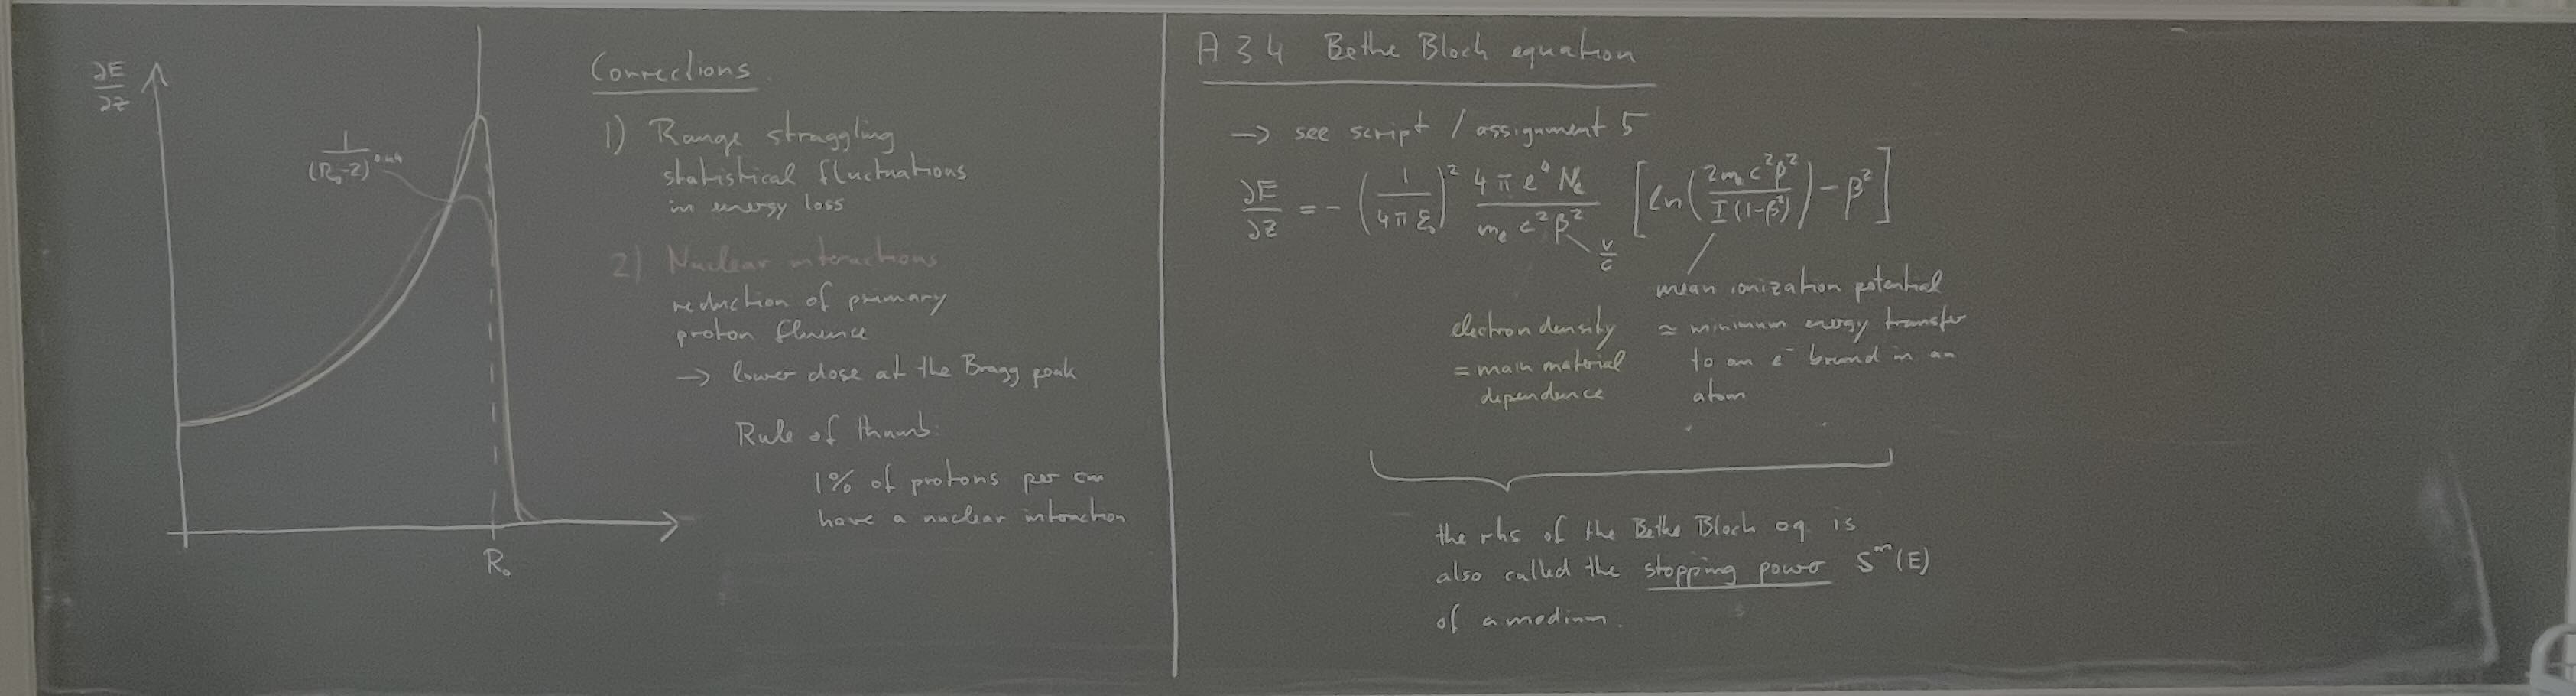 ∂E/∂z
1/(R₀-z)^0.44
R₀
Corrections
1) Range straggling
statistical fluctuations
in energy loss
2) Nuclear interactions
reduction of primary
proton fluence
→ lower dose at the Bragg peak
Rule of thumb:
1% of protons per cm
have a nuclear interaction
A 3 4 Bethe Bloch equation
→ see script / assignment 5
∂E/∂z = - (1/(4πε₀))² (4πe⁴Nₑ)/(mₑc²β²) [ln((2mₑc²β²)/(I(1-β²))) - β²]
v/c
electron density
= main material
dependence
mean ionization potential
≈ minimum energy transfer
to an e⁻ bound in an
atom
the rhs of the Bethe Bloch eq. is
also called the stopping power Sᵐ(E)
of a medium.